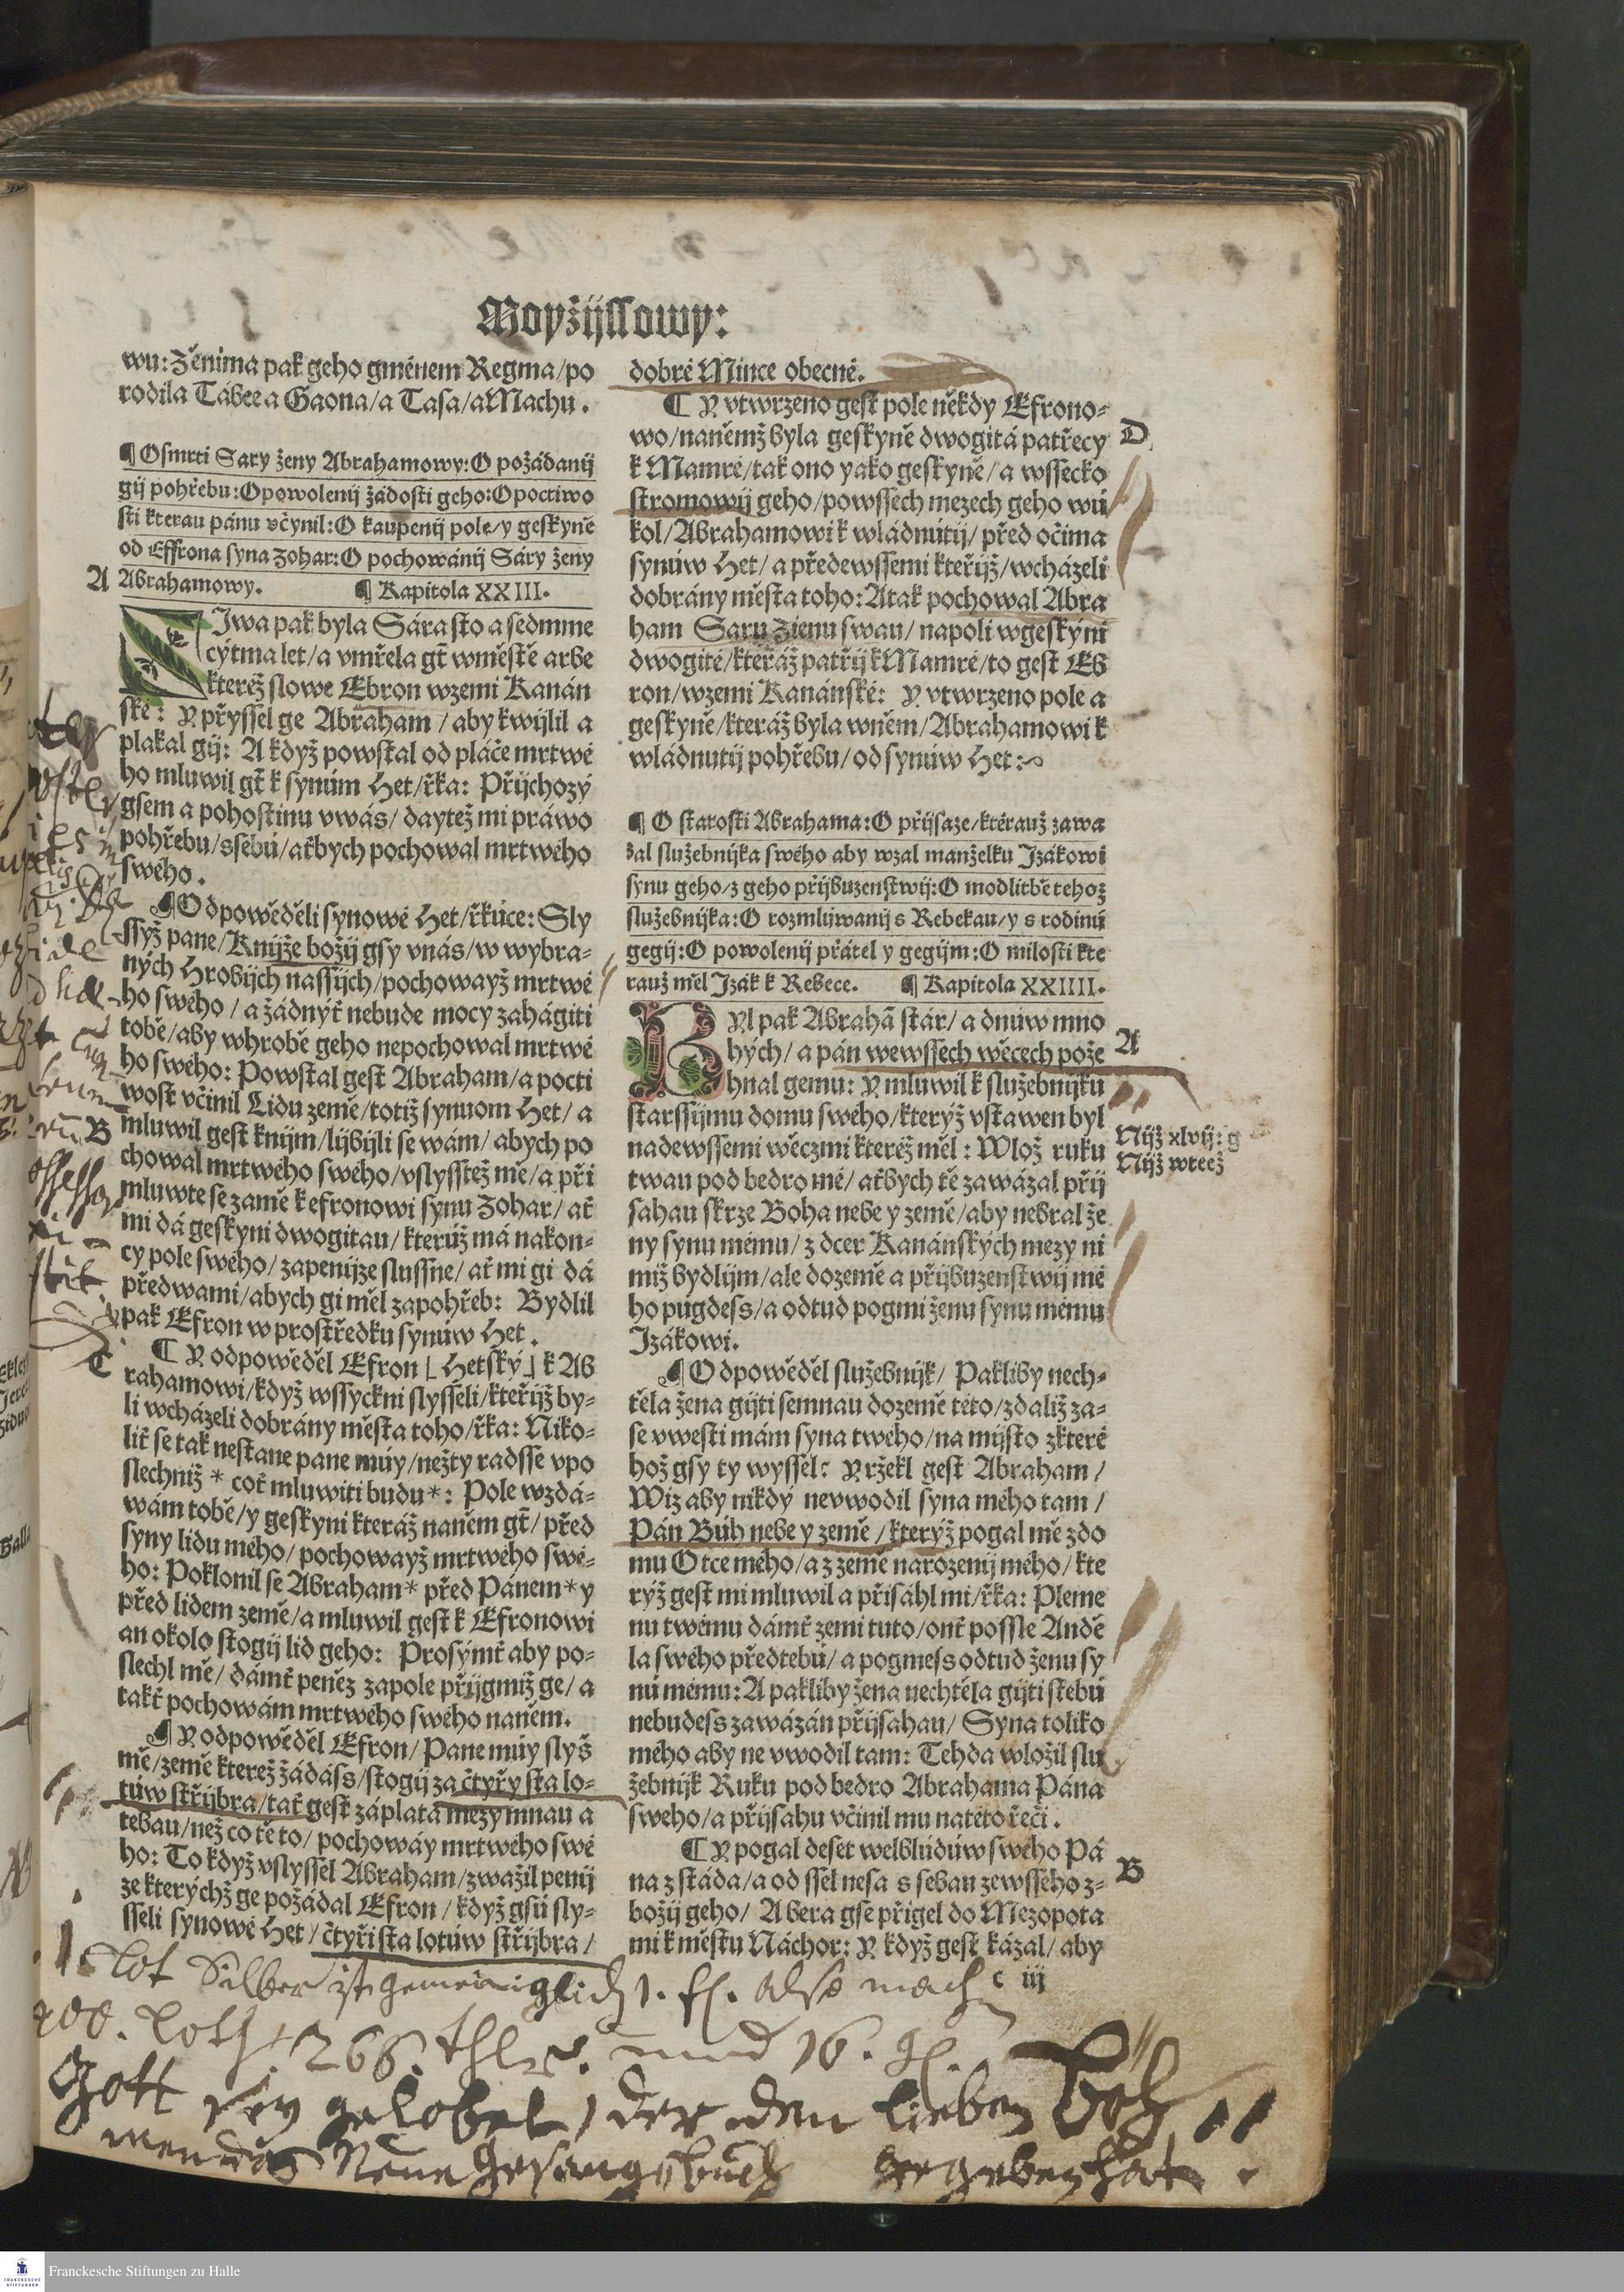 Moyžijssowy:
wu: Zěnima pak geho gménem Regma/po
rodila Tábee a Gaona/a Tasa/a Machu.
¶ O smrti Sary ženy Abrahamowy: O požádanij
gij pohřebu: O powolenij žádosti geho: O poctiwo
sti kterau pánu včynil: O kaupenij pole/y geskyně
od Effrona syna Zohar: O pochowánij Sáry ženy
A Abrahamowy. ¶ Kapitola XXIII.
Jwa pak byla Sára sto a sedmme
cýtma let/a vmřela gt̃ w městě arbe
kteréž slowe Ebron w zemi Kanán
ské: Y přyssel ge Abraham / aby kwijlil a
plakal gij: A když powstal od pláče mrtwé
ho mluwil gt̃ k synúm Het/řka: Přijchozý
gsem a pohostinu v wás/ daytež mi práwo
pohřebu/s sebú/ať bych pochowal mrtwého
swého.
¶ Odpowěděli synowé Het/řkúce: Sly
ssyž pane/Knijže božij gsy v nás/w wybra=
ných Hrobijch nassijch/pochowayž mrtwé
ho swého / a žádnýť nebude mocy zahágiti
tobě/aby w hrobě geho nepochowal mrtwé
ho swého: Powstal gest Abraham/a pocti
wost včinil Lidu země/totiž synuom Het/ a
B mluwil gest k nijm/lijbijli se wám/ abych po
chowal mrtwého swého/vslysstež mě/a při
mluwte se za mě k efronowi synu Zohar/ ať
mi dá geskyni dwogitau/kterúž má na kon=
cy pole swého/ za penijze slussne/ ať mi gi dá
před wami/abych gi měl za pohřeb: Bydlil
pak Efron w prostředku synúw Het.
C ¶ Y odpowěděl Efron [Hetský] k Ab
rahamowi/když wssyckni slysseli/kteřijž by=
li wcházeli do brány města toho/řka: Niko=
liť se tak nestane pane múy/než ty radsse vpo
slechniž * coť mluwiti budu*: Pole wzdá=
wám tobě/y geskyni kteráž na něm gt̃/ před
syny lidu mého/ pochowayž mrtwého swé=
ho: Poklonil se Abraham* před Pánem* y
před lidem země/a mluwil gest k Efronowi
an okolo stogij lid geho: Prosýmť aby po=
slechl mě/ dámť peněz za pole přijgmiž ge/ a
takť pochowám mrtwého swého na něm.
¶ Y odpowěděl Efron/ Pane múy slyš
mě/země kterež žádáss/stogij za čtyřy sta lo=
túw střijbra/ tať gest záplata mezy mnau a
tebau/než co tě to/ pochowáy mrtwého swé
ho: To když vslyssel Abraham/zwažil penij
ze kterýchž ge požádal Efron/ když gsú sly=
sseli synowé Het/čtyři sta lotúw střijbra/
dobré Mince obecné.
D ¶ Y vtwrzeno gest pole někdy Efrono=
wo/na němž byla geskyně dwogitá patřecy
k Mamré/tak ono yako geskyně/ a wssecko
stromowij geho/po wssech mezech geho wú
kol/Abrahamowi k wládnútij/ před očima
synúw Het/ a přede wssemi kteřijž/wcházeli
do brány města toho: A tak pochowal Abra
ham Saru Zienu swau/ na poli w geskyni
dwogité/kteráž patřij k Mamré/to gest Eb
ron/w zemi Kanánské: Y vtwrzeno pole a
geskyně/kteráž byla w něm/Abrahamowi k
wládnutij pohřebu/ od synúw Het:
¶ O starosti Abrahama: O přijsaze/kterauž zawa
zal služebnijka swého aby wzal manželku Izákowi
synu geho/z geho přijbuzenstwij: O modlitbě tehož
služebnijka: O rozmlúwanij s Rebekau/y s rodinú
gegij: O powolenij přátel y gegijm: O milosti kte
rauž měl Izák k Rebece. ¶ Kapitola XXIIII.
BYl pak Abrahã stár/ a dnúw mno
A hých/ a pán we wssech wěcech pože
hnal gemu: Y mluwil k služebnijku
starssijmu domu swého/kterýž vstawen byl
nade wssemi wěczmi kteréž měl: Wlož ruku
Nijž xlvij: g
Nijž wteež
twau pod bedro mé/ ať bych tě zawázal přij
sahau skrze Boha nebe y země/aby nebral že
ny synu mému/ z dcer Kanánských mezy ni
miž bydlijm/ale do země a přijbuzenstwij mé
ho púgdess/a odtud pogmi ženu synu mému
Izákowi.
¶ Odpowěděl služebnijk/ Pakliby nech=
těla žena gijti se mnau do země této/zdaliž za=
se vwesti mám syna twého/na mijsto z které
hož gsy ty wyssel: Y ržekl gest Abraham/
Wiz aby nikdý nevwodil syna mého tam/
Pán Búh nebe y země/kterýž pogal mě z do
mu Otce mého/a z země narozenij mého/ kte
rýž gest mi mluwil a přisáhl mi/řka: Pleme
nu twému dámť zemi tuto/onť possle Andě
la swého před tebú/ a pogmess odtud ženu sy
nú mému: A pakliby žena nechtěla gijti s tebú
nebudess zawázán přijsahau/ Syna toliko
mého aby ne vwodil tam: Tehda wložil slu
žebnijk Ruku pod bedro Abrahama Pána
swého/a přijsahu včinil mu na této řeči.
B ¶ Y pogal deset welblúdúw swého Pá
na z stáda/a odssel nesa s sebau ze wssého z=
božij geho/ A bera gse přigel do Mezopota
mi k městu Náchor: Y když gest kázal/ aby
c iij
1. Lot Silber ist gemeiniglich 1. fl. Also mach
400. Loth 266. thlr. und 16. gl.
Gott sey gelobet, der den lieben Böh
men das Neue Gesangbuch gegeben hat.
Franckesche Stiftungen zu Halle